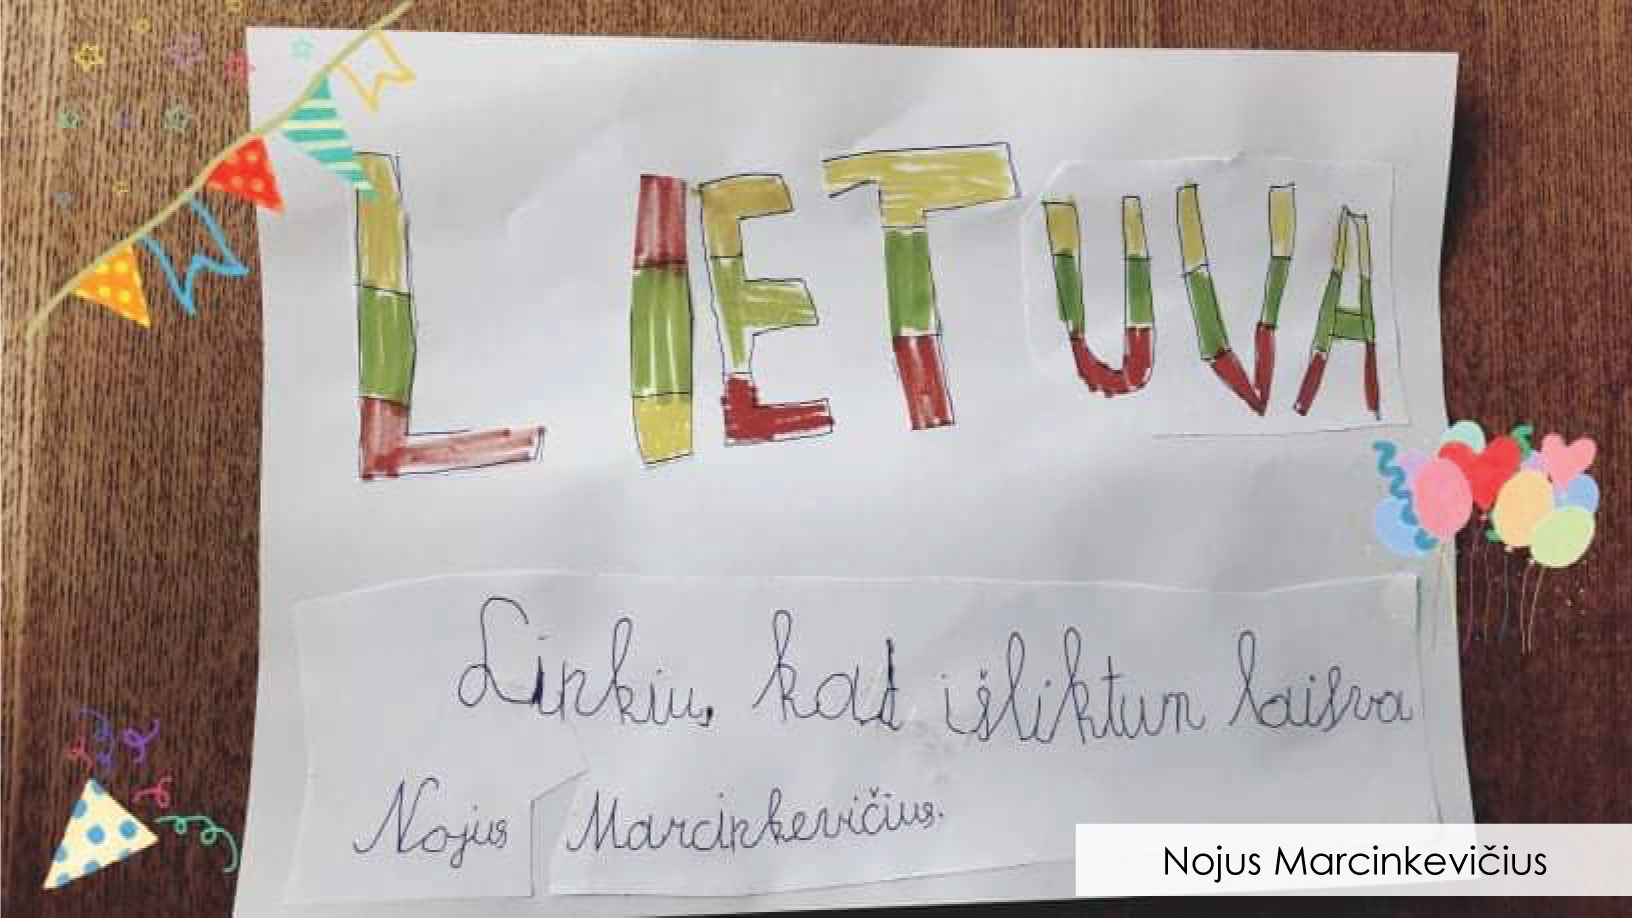 LIETUVA
Linkiu, kad išliktum laisva
Nojus Marcinkevičius.
Nojus Marcinkevičius